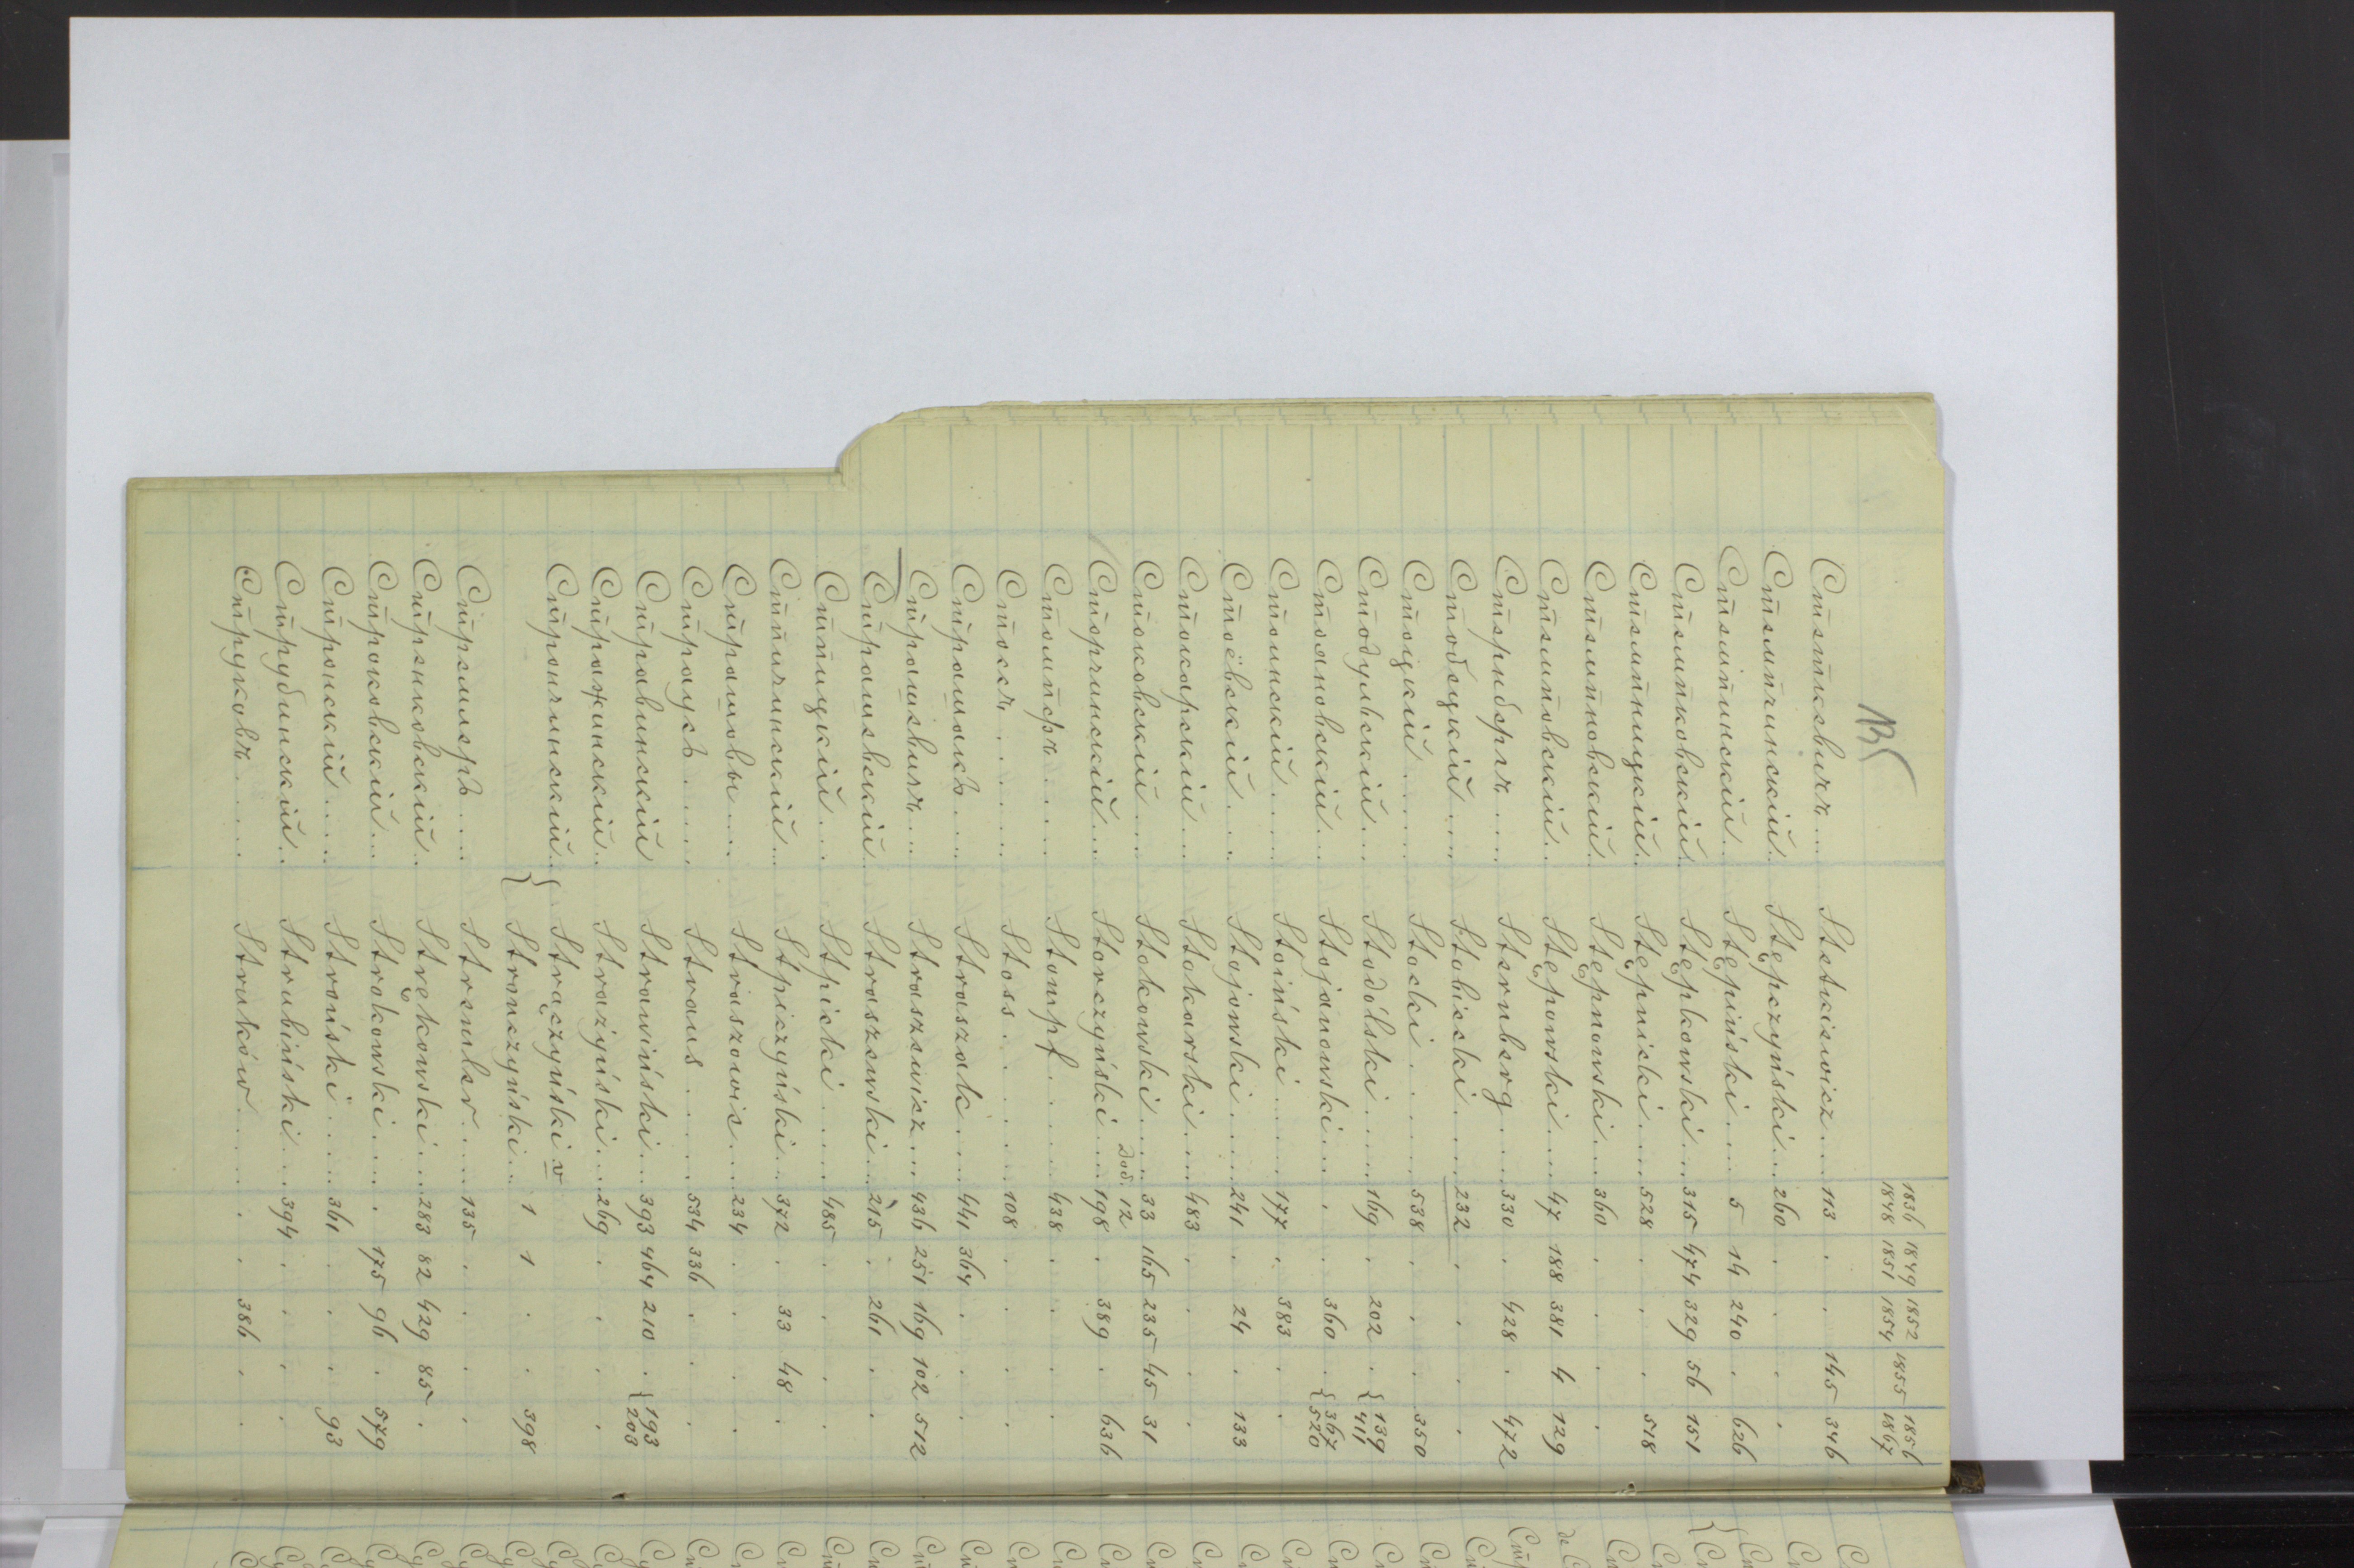 1836 1849 1852 1855 1856
1848 1851 1854 1867
Стеткевичъ.... Stetkiewicz.... 113 . . 145 346
Стемпчинскій.. Stępczyński... 260 . . . .
Стемпинскій... Stępiński.... 5 14 240 . 626
Стемпковскій.. Stępkowski... 315 474 329 56 151
Стемпницкій.. Stępnicki.... 528 . . . 518
Стемпновскій.. Stępnowski... 360 . . . .
Стемповскій... Stępowski.... 47 188 381 4 129
Стернбергъ.... Sternberg.... 330 . 428 . 472
Стобецкій.... Stobiecki.... 232 . . . .
Стоцкій..... Stocki..... 538 . . . 350
Стодульскій... Stodólski.... 169 . 202 . {139
411
Стояновскій... Stojanowski... . . 360 . {367
520
Стоинскій.... Stoiński.... 177 . 383 . .
Стоёвскій.... Stojowski.... 241 . 24 . 133
Стокарскій... Stokarski.... 483 . . . .
Стоковскій.... Stokowski.... 33 165 235 45 31
дод. 12
Сторчинскій... Storczyński... 198 . 389 . 636
Стомпфъ.... Stompf..... 438 . . . .
Стоссъ...... Stoss...... 108 . . . .
Страшакъ.... Straszak.... 441 364 . . .
Страшевичъ... Straszewicz... 436 251 169 102 512
Страшевскій.. Straszewski... 215 . 261 . .
Спицкій.... Spicki.... 485 . . . .
Спичинскій... Spiczyński... 372 . 33 48 .
Страшовы.... Straszowie... 234 . . . .
Страусъ..... Straus..... 534 336 . . .
Стравинскій Strawiński... 393 464 210 . {193
203
Стражинскій.. Strażyński... 269 . . . .
Стрончинскій.. { Strączyński v
{ Stronczyński.. 1 1 . . 398
Стремлеръ.... Stremler.... 135 . . . .
Стренковскій. Strękowski... 283 82 429 85 .
Строковскій... Strokowski.... . 175 96 . 579
Stroński..... 361 . . . 93
Струбинскій.. Strubiński... 394 . . . .
Струковъ.... Struków..... . . 386 . .